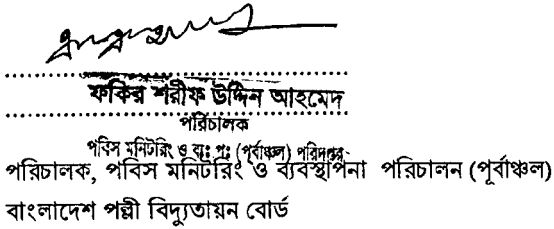 ফকির শরীফ উদ্দিন আহমেদ
পরিচালক
পবিস মনিটরিং ও ব্যঃ পঃ (পূর্বাঞ্চল) পরিদপ্তর
পরিচালক, পবিস মনিটরিং ও ব্যবস্থাপনা পরিচালন (পূর্বাঞ্চল)
বাংলাদেশ পল্লী বিদ্যুতায়ন বোর্ড